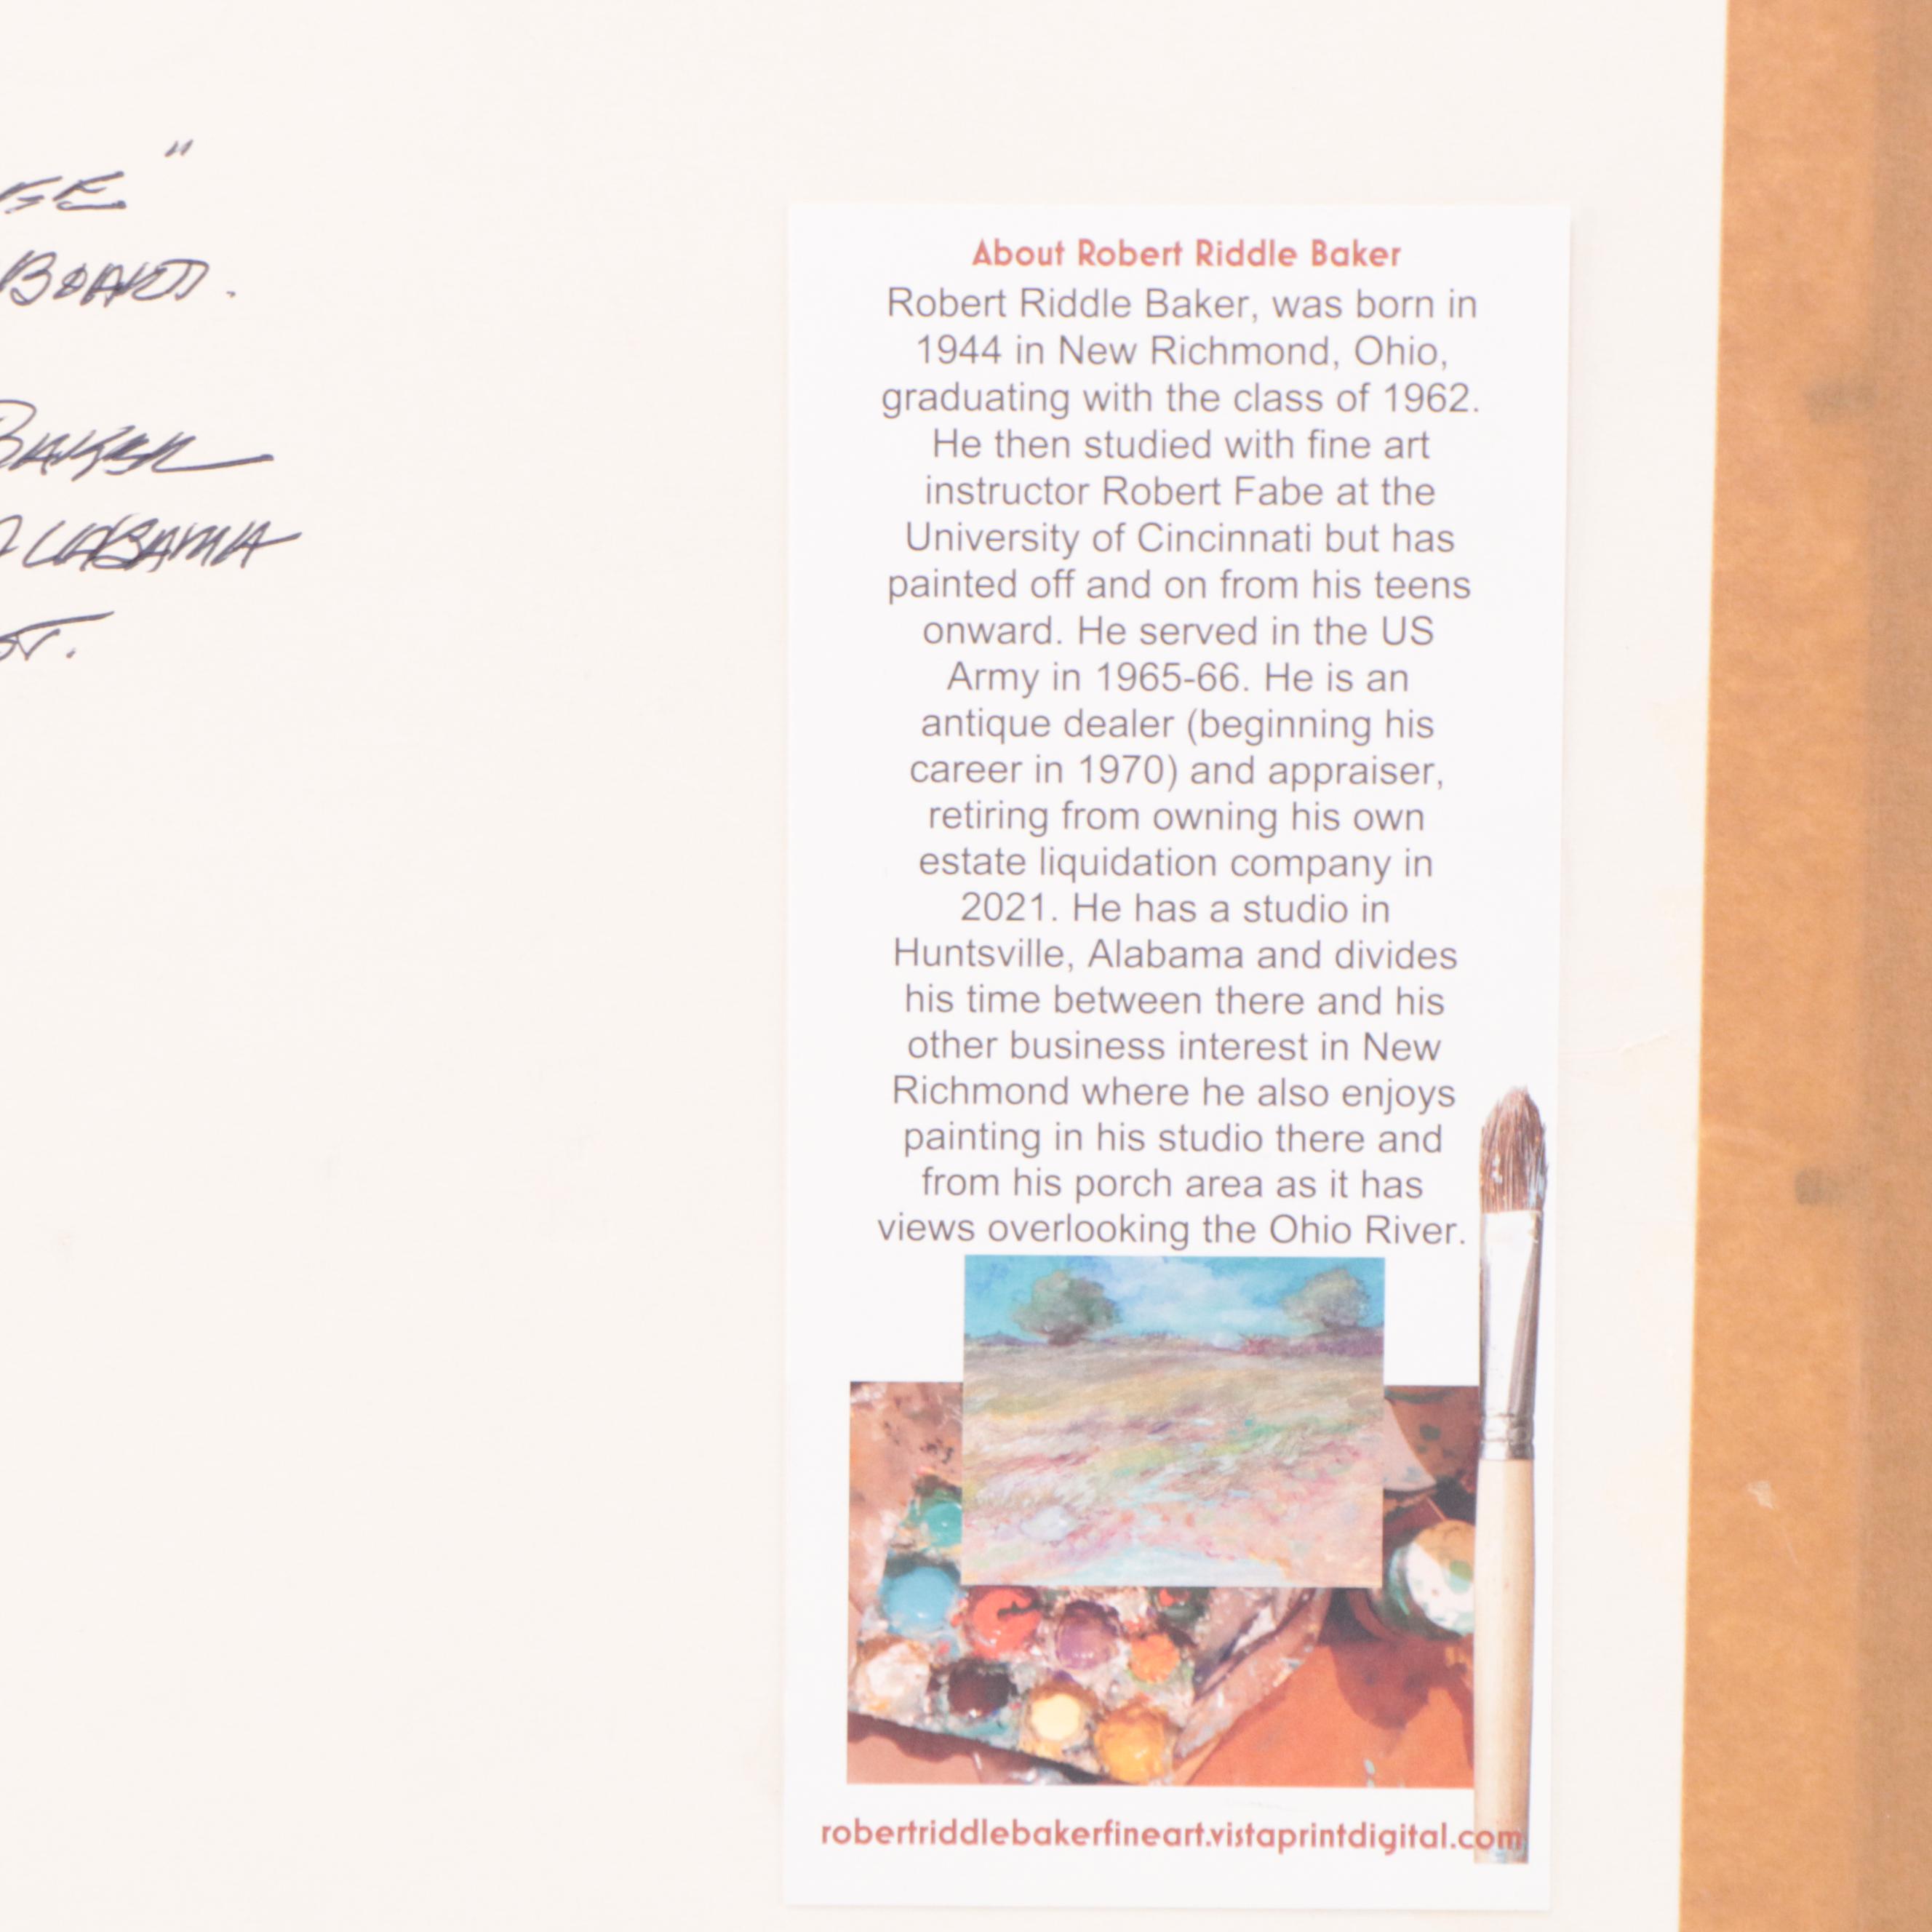 "
BOARD.
BAKER
ALABAMA
About Robert Riddle Baker
Robert Riddle Baker, was born in
1944 in New Richmond, Ohio,
graduating with the class of 1962.
He then studied with fine art
instructor Robert Fabe at the
University of Cincinnati but has
painted off and on from his teens
onward. He served in the US
Army in 1965-66. He is an
antique dealer (beginning his
career in 1970) and appraiser,
retiring from owning his own
estate liquidation company in
2021. He has a studio in
Huntsville, Alabama and divides
his time between there and his
other business interest in New
Richmond where he also enjoys
painting in his studio there and
from his porch area as it has
views overlooking the Ohio River.
robertriddlebakerfineart.vistaprintdigital.com